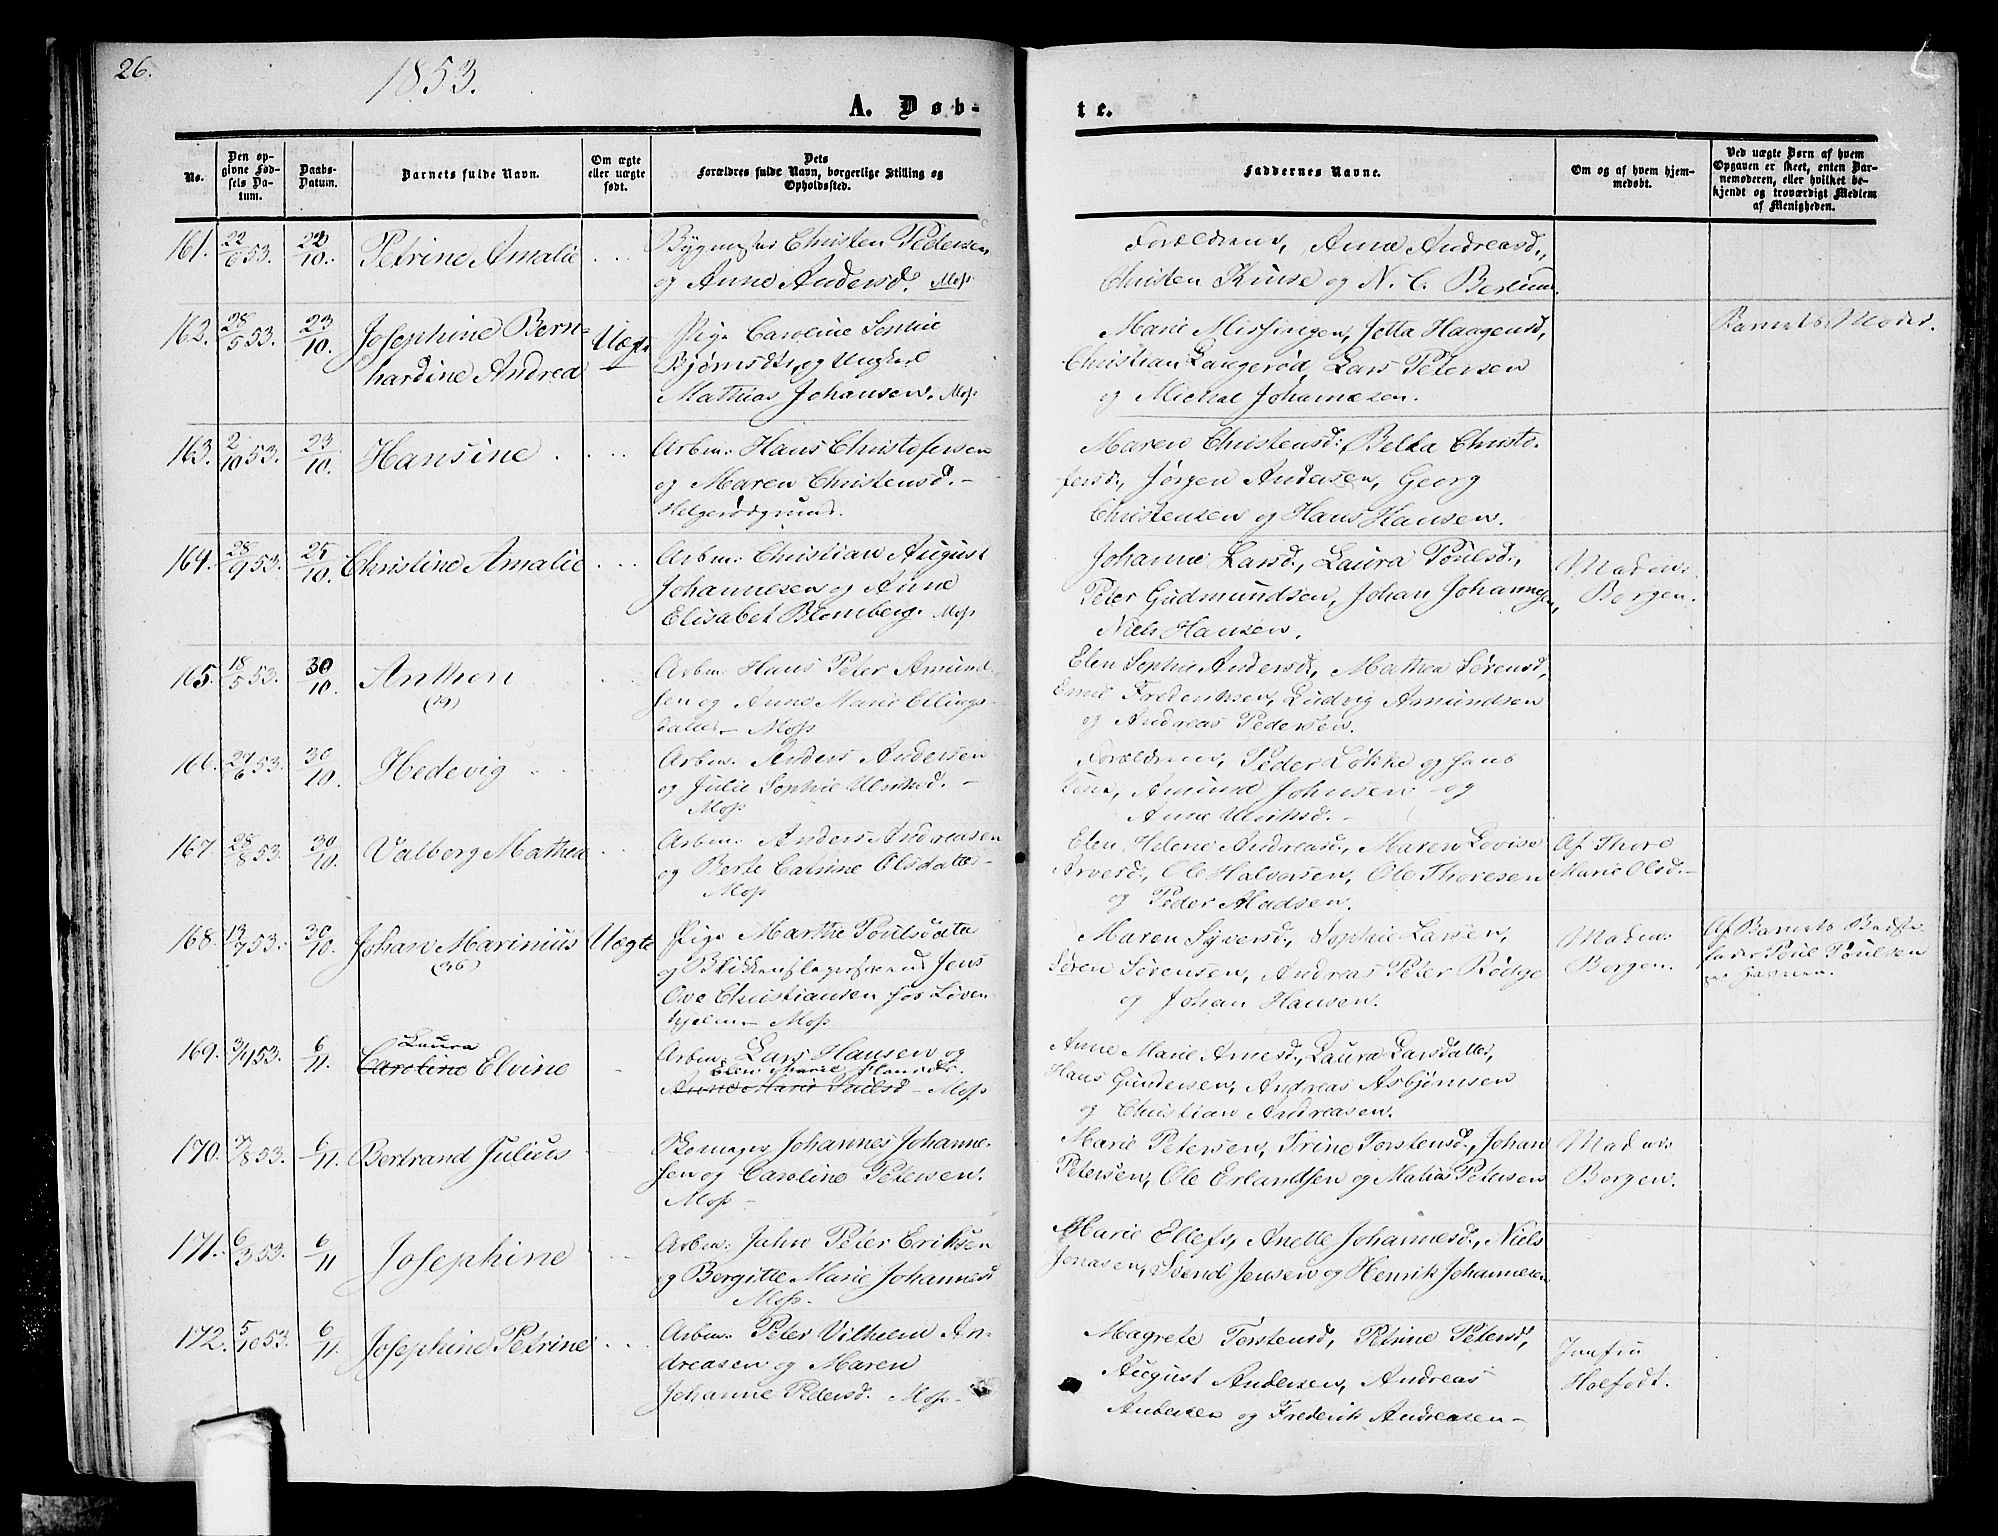 26.
1853.
A. Døb-
te.
No.
Den op-
givne Fød-
sels Da-
tum.
Daabs-
Datum.
Barnets fulde Navn.
Om ægte
eller uægte
født.
Dets
Forældres fulde Navn, borgerlige Stilling og
Opholdssted.
Faddernes Navne.
Om og af hvem hjem-
medøbt.
Ved uægte Børn af hvem
Opgaven er skeet, enten Bar-
nemoderen, eller hvilket be-
kjendt og troværdigt Medlem
af Menigheden.
161. 22/6 53. 22/10. Petrine Amalie
Bygmester Christen Pedersen
og Anne Andersd. Moss
Forældrene, Anne Andreasd.,
Christen Kruse og N. C.
162. 28/5 53. 23/10. Josephine Bern-
hardine Andrea
Uægte
Pige Caroline Sophie
Bjørnsdtr. og Ungkarl
Mathias Johansen. Moss
Marie Missingen, Jetta Haagensd,
Christian Langerød, Lars Petersen
og Michal Johannesen.
Barnets Moder.
163. 2/10 53. 23/10. Hansine
Arbm. Hans Christofersen
og Maren Christensd.
Helgerødgrund.
Maren Christensd: Christo-
fersd., Jørgen Andersen, Georg
Christensen og Hans Hansen.
164. 28/9 53. 25/10. Christine Amalie
Arbm. Christian August
Johannesen og Anne
Elisabet Blomberg. Moss
Johanne Larsd., Laura Poulsd.,
Peter Gudmundsen, Johan Johannesen,
Niels Hansen.
Madm:
Borgen.
165. 18/5 53. 30/10. Anthon
(19)
Arbm. Hans Peter Amund-
sen og Anne Marie Ellings-
datter – Moss
Elen Sophie Andersd, Mathea Sørensd,
Emil Frederiksen, Ludvig Amundsen
og Andreas Pedersen.
166. 29/6 53. 30/10. Hedevig
Arbm. Anders Andersen
og Julie Sophie Ulriksd. –
Moss
Forældrene, Peder Løkke og hans
Kone, Amund Johnsen og
Anne Ulriksd. –
167. 28/8 53. 30/10. Valborg Mathea
Arbm. Anders Andreasen
og Berte Catrine Olsdatter
Moss
Elen Helene Andreasd, Maren Lovise
Arvesd, Ole Halvorsen, Ole Thoresen
og Peder Madsen.
Af Thore
Marie Olsd. –
168. 19/7 53. 30/10. Johan Marinius
(36)
Uægte
Pige Marthe Poulsdatter
og Blikkenslagersvend Jens
Ove Christiansen hos Løven-
hjelm – Moss
Maren Syversd, Sophie Larsen,
Søren Sørensen, Andreas Peter Rødge
og Johan Hansen.
Madm:
Borgen.
Af Barnets Bedste-
fader Poul Poulsen
169. 53. 6/11. Laura
Caroline Elvine
Arbm. Lars Hansen og
Elen Marie
Anne Marie Poulsd – Moss
Anne Marie Arnesd., Laura Larsdatter,
Hans Gundersen, Andreas Asbjørnsen
og Christian Andreasen.
170. 53. 6/11. Bertrand Julius
Skomager Johannes Johanne-
sen og Caroline Petersen.
Moss –
Marie Petersen, Trine Torstensd., Johan
Petersen, Ole Erlandsen og Matias Petersen
Madm:
Borgen.
171. 6/3 53. 6/11 Josephine
Arbm: John Peter Eriksen
og Bergitte Marie Johannesd
Moss –
Marie Ellefs, Anette Johannesd., Niels
Jonasen, Svend Jensen og Henrik Johannesen
172. 5/10 53. 6/11. Josephine Petrine
Arbm: Peter Vilhelm An-
dreasen og Maren
Johanne Pedersd. Moss –
Magrete Torstensd, Petrine Petersd,
August Andersen, Andreas
Andersen og Frederik Andreasen –
Jomfru
Holfodt.